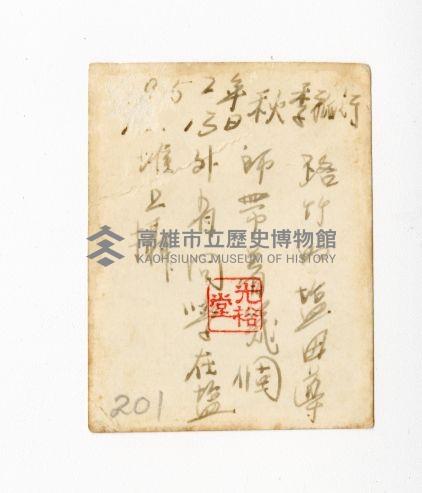 952年秋季旅行
15日
路竹 塩田導
師帶 我們
外有同學在塩
堆上
光裕堂
201
高雄市立歷史博物館
KAOHSIUNG MUSEUM OF HISTORY